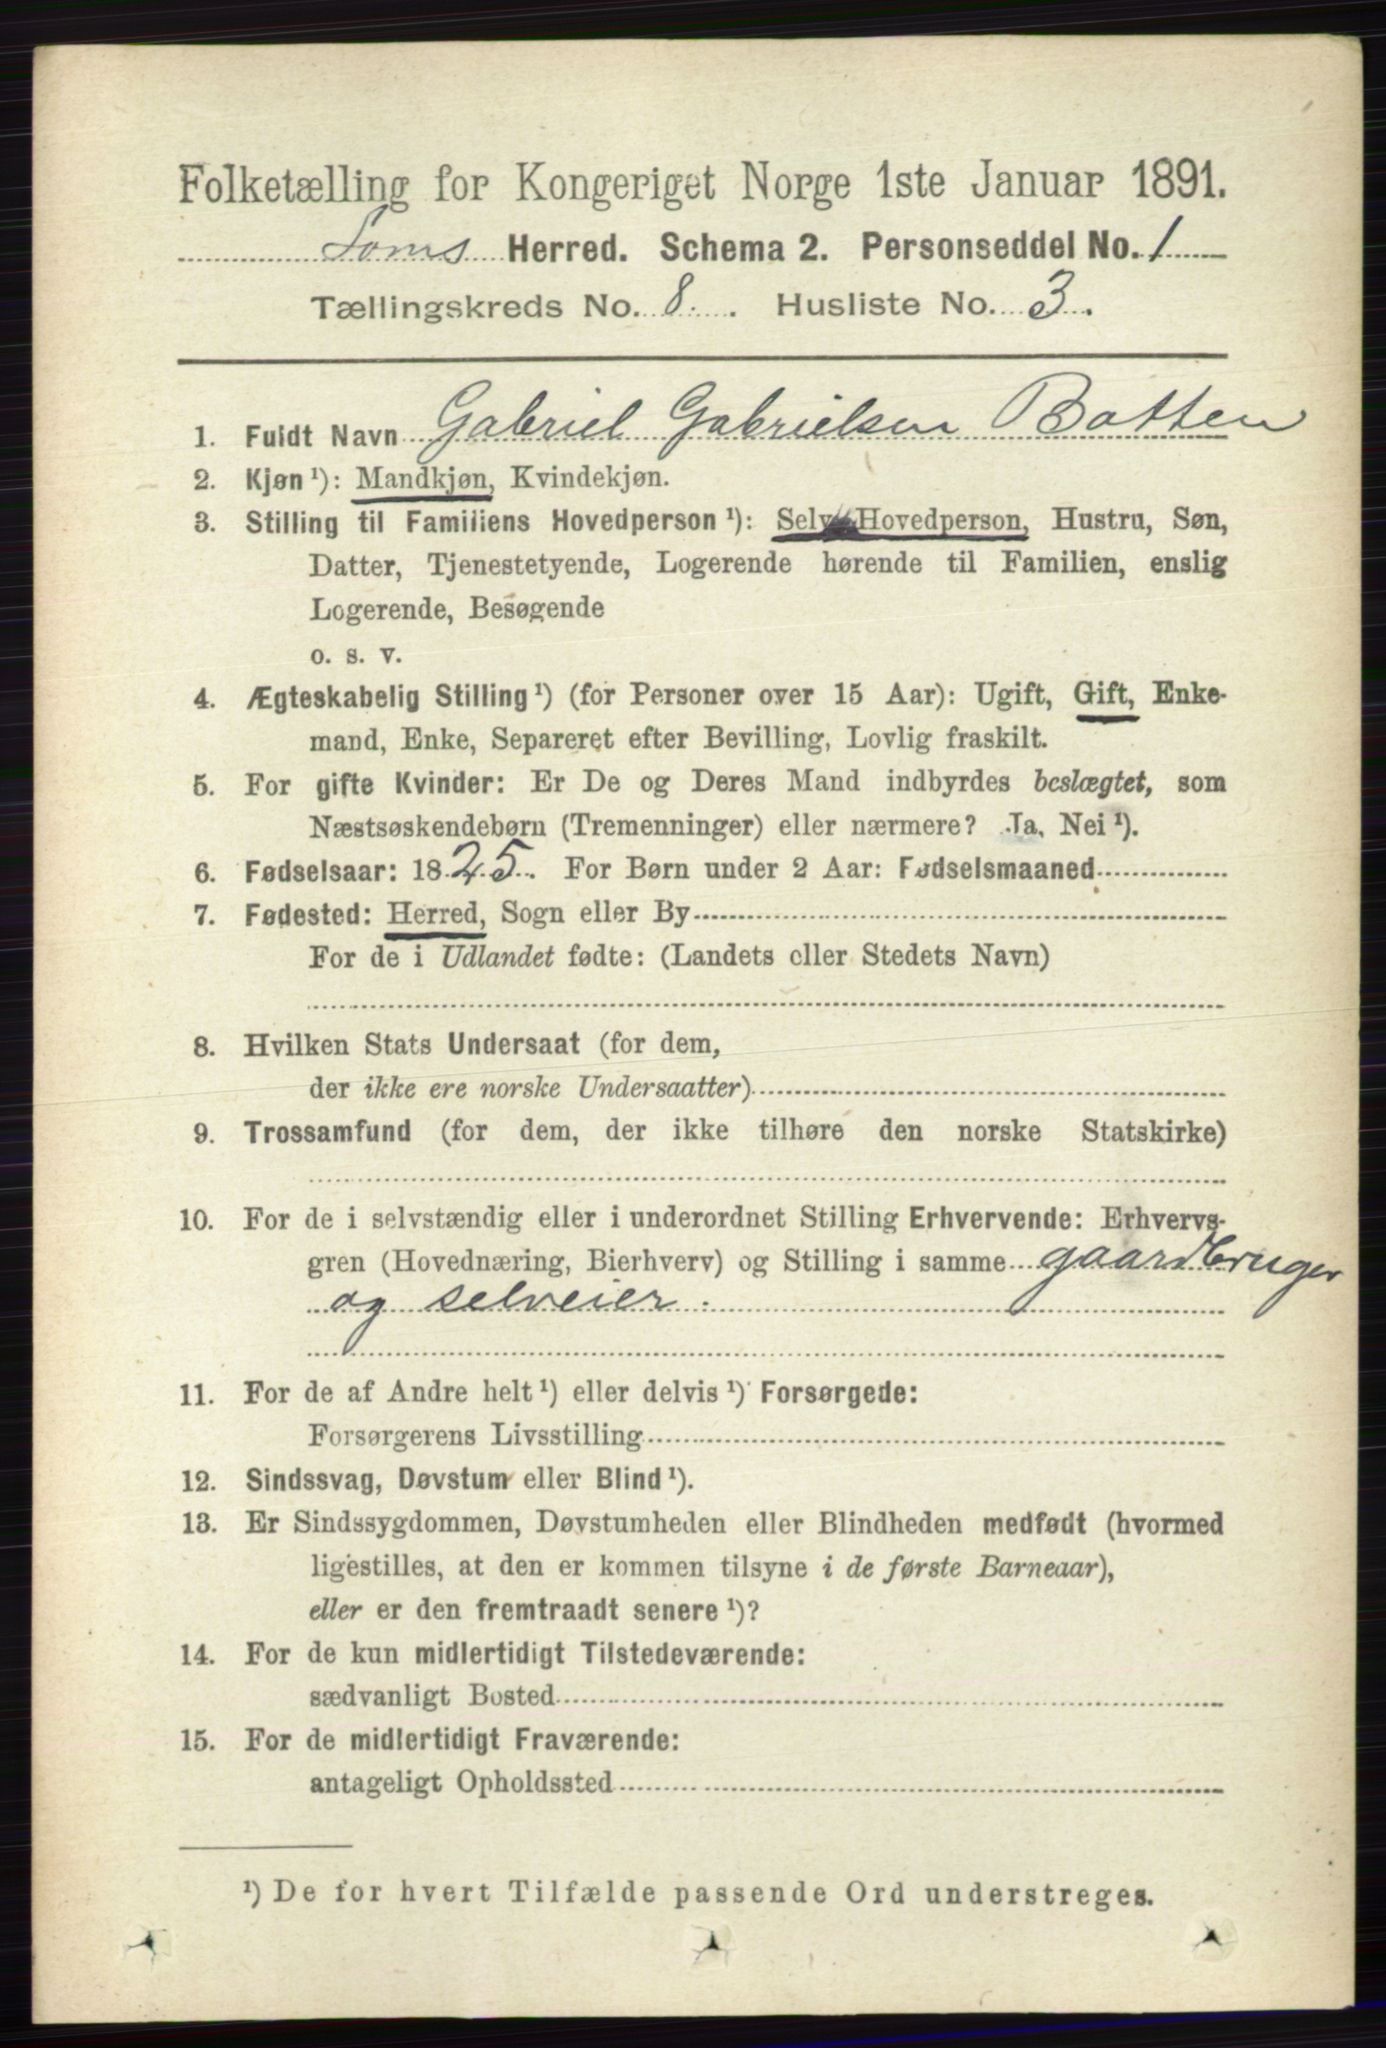 Folketælling for Kongeriget Norge 1ste Januar 1891.
Loms Herred. Schema 2. Personseddel No. 1
Tællingskreds No. 8. Husliste No. 3.
1. Fuldt Navn Gabriel Gabrielsen Botten
2. Kjøn ¹): Mandkjøn, Kvindekjøn.
3. Stilling til Familiens Hovedperson ¹): Selv Hovedperson, Hustru, Søn,
Datter, Tjenestetyende, Logerende hørende til Familien, enslig
Logerende, Besøgende
o. s. v.
4. Ægteskabelig Stilling ¹) (for Personer over 15 Aar): Ugift, Gift, Enke-
mand, Enke, Separeret efter Bevilling, Lovlig fraskilt.
5. For gifte Kvinder: Er De og Deres Mand indbyrdes beslægtet, som
Næstsøskendebørn (Tremenninger) eller nærmere? Ja, Nei ¹).
6. Fødselsaar: 1825. For Børn under 2 Aar: Fødselsmaaned
7. Fødested: Herred, Sogn eller By
For de i Udlandet fødte: (Landets eller Stedets Navn)
8. Hvilken Stats Undersaat (for dem,
der ikke ere norske Undersaatter)
9. Trossamfund (for dem, der ikke tilhøre den norske Statskirke)
10. For de i selvstændig eller i underordnet Stilling Erhvervende: Erhvervs-
gren (Hovednæring, Bierhverv) og Stilling i samme gaardbruger
og selveier.
11. For de af Andre helt ¹) eller delvis ¹) Forsørgede:
Forsørgerens Livsstilling
12. Sindssvag, Døvstum eller Blind ¹).
13. Er Sindssygdommen, Døvstumheden eller Blindheden medfødt (hvormed
ligestilles, at den er kommen tilsyne i de første Barneaar),
eller er den fremtraadt senere ¹)?
14. For de kun midlertidigt Tilstedeværende:
sædvanligt Bosted
15. For de midlertidigt Fraværende:
antageligt Opholdssted
¹) De for hvert Tilfælde passende Ord understreges.